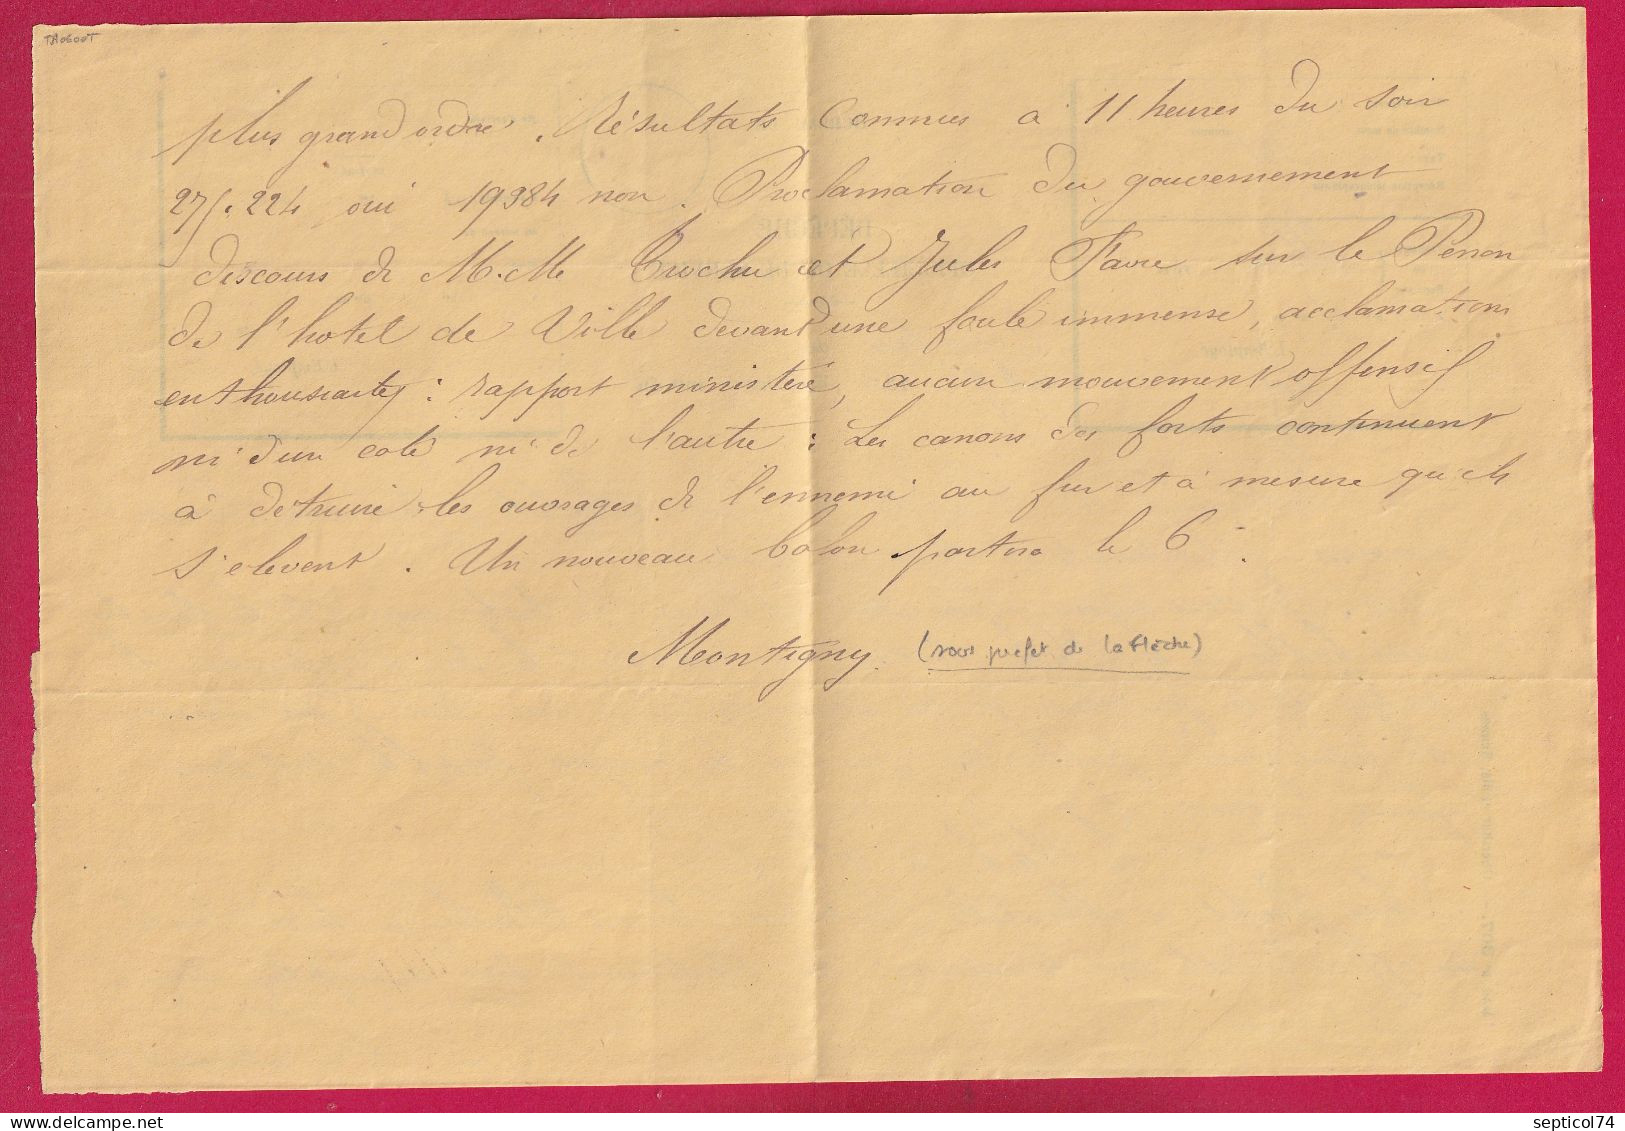 plus grand ordre. Résultats Connus a 11 heures du soir
27/.224 oui 19384 non. Proclamation du gouvernement
discours de M.M Trochu et Jules Favre sur le Perron
de l'hotel de Ville devant une foule immense, acclamations
enthousiastes : rapport ministère, aucun mouvement offensif
ni d'un coté ni de l'autre : Les canons des forts continuent
à detruire les ouvrages de l'ennemi au fur et à mesure qu'ils
s'elevent. Un nouveau balon partira le 6
Montigny (sous prefet de la Flèche)
septicol74